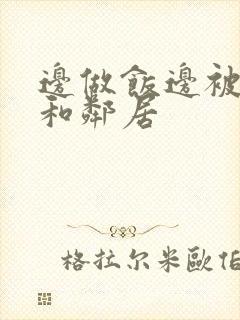 邊做飯邊被
和鄰居
格拉尔米歐伯